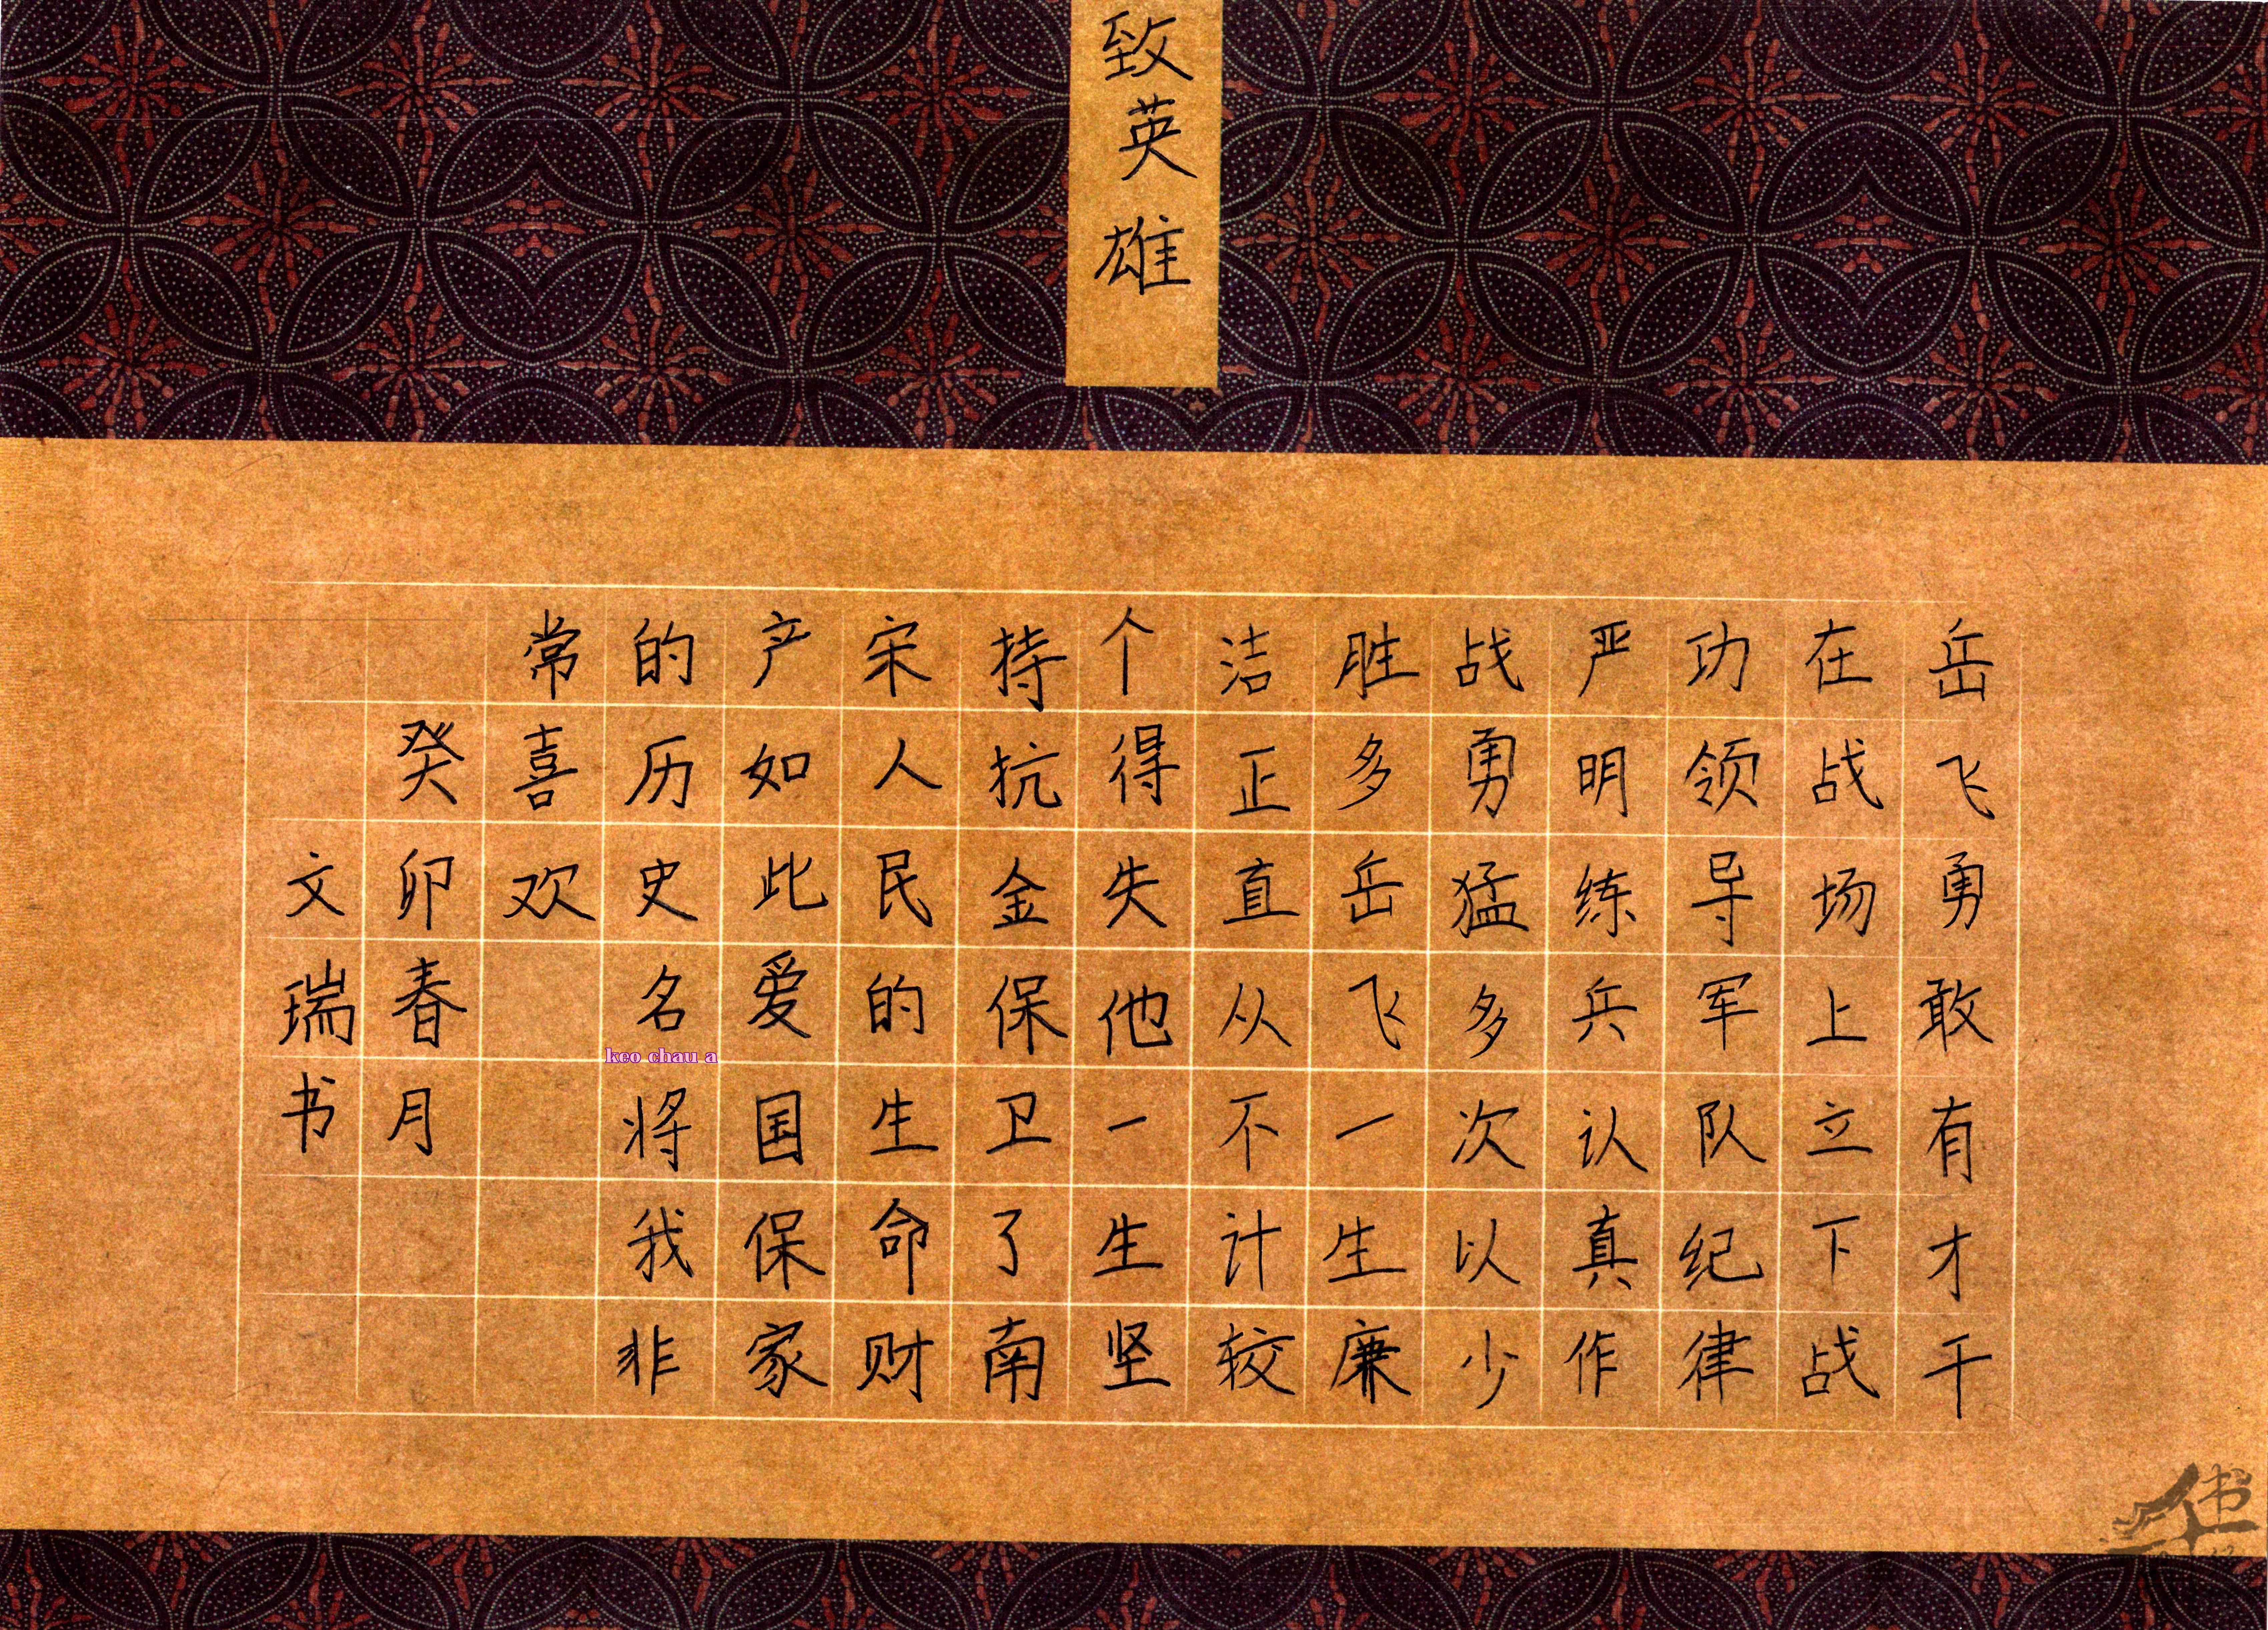 致英雄
岳飞勇敢有才干
在战场上立下战
功领导军队纪律
严明练兵认真作
战勇猛多次以少
胜多岳飞一生廉
洁正直从不计较
个得失他一生坚
持抗金保卫了南
宋人民的生命财
产如此爱国保家
的历史名将我非
常喜欢
癸卯春月
文瑞书
keo chau a
书